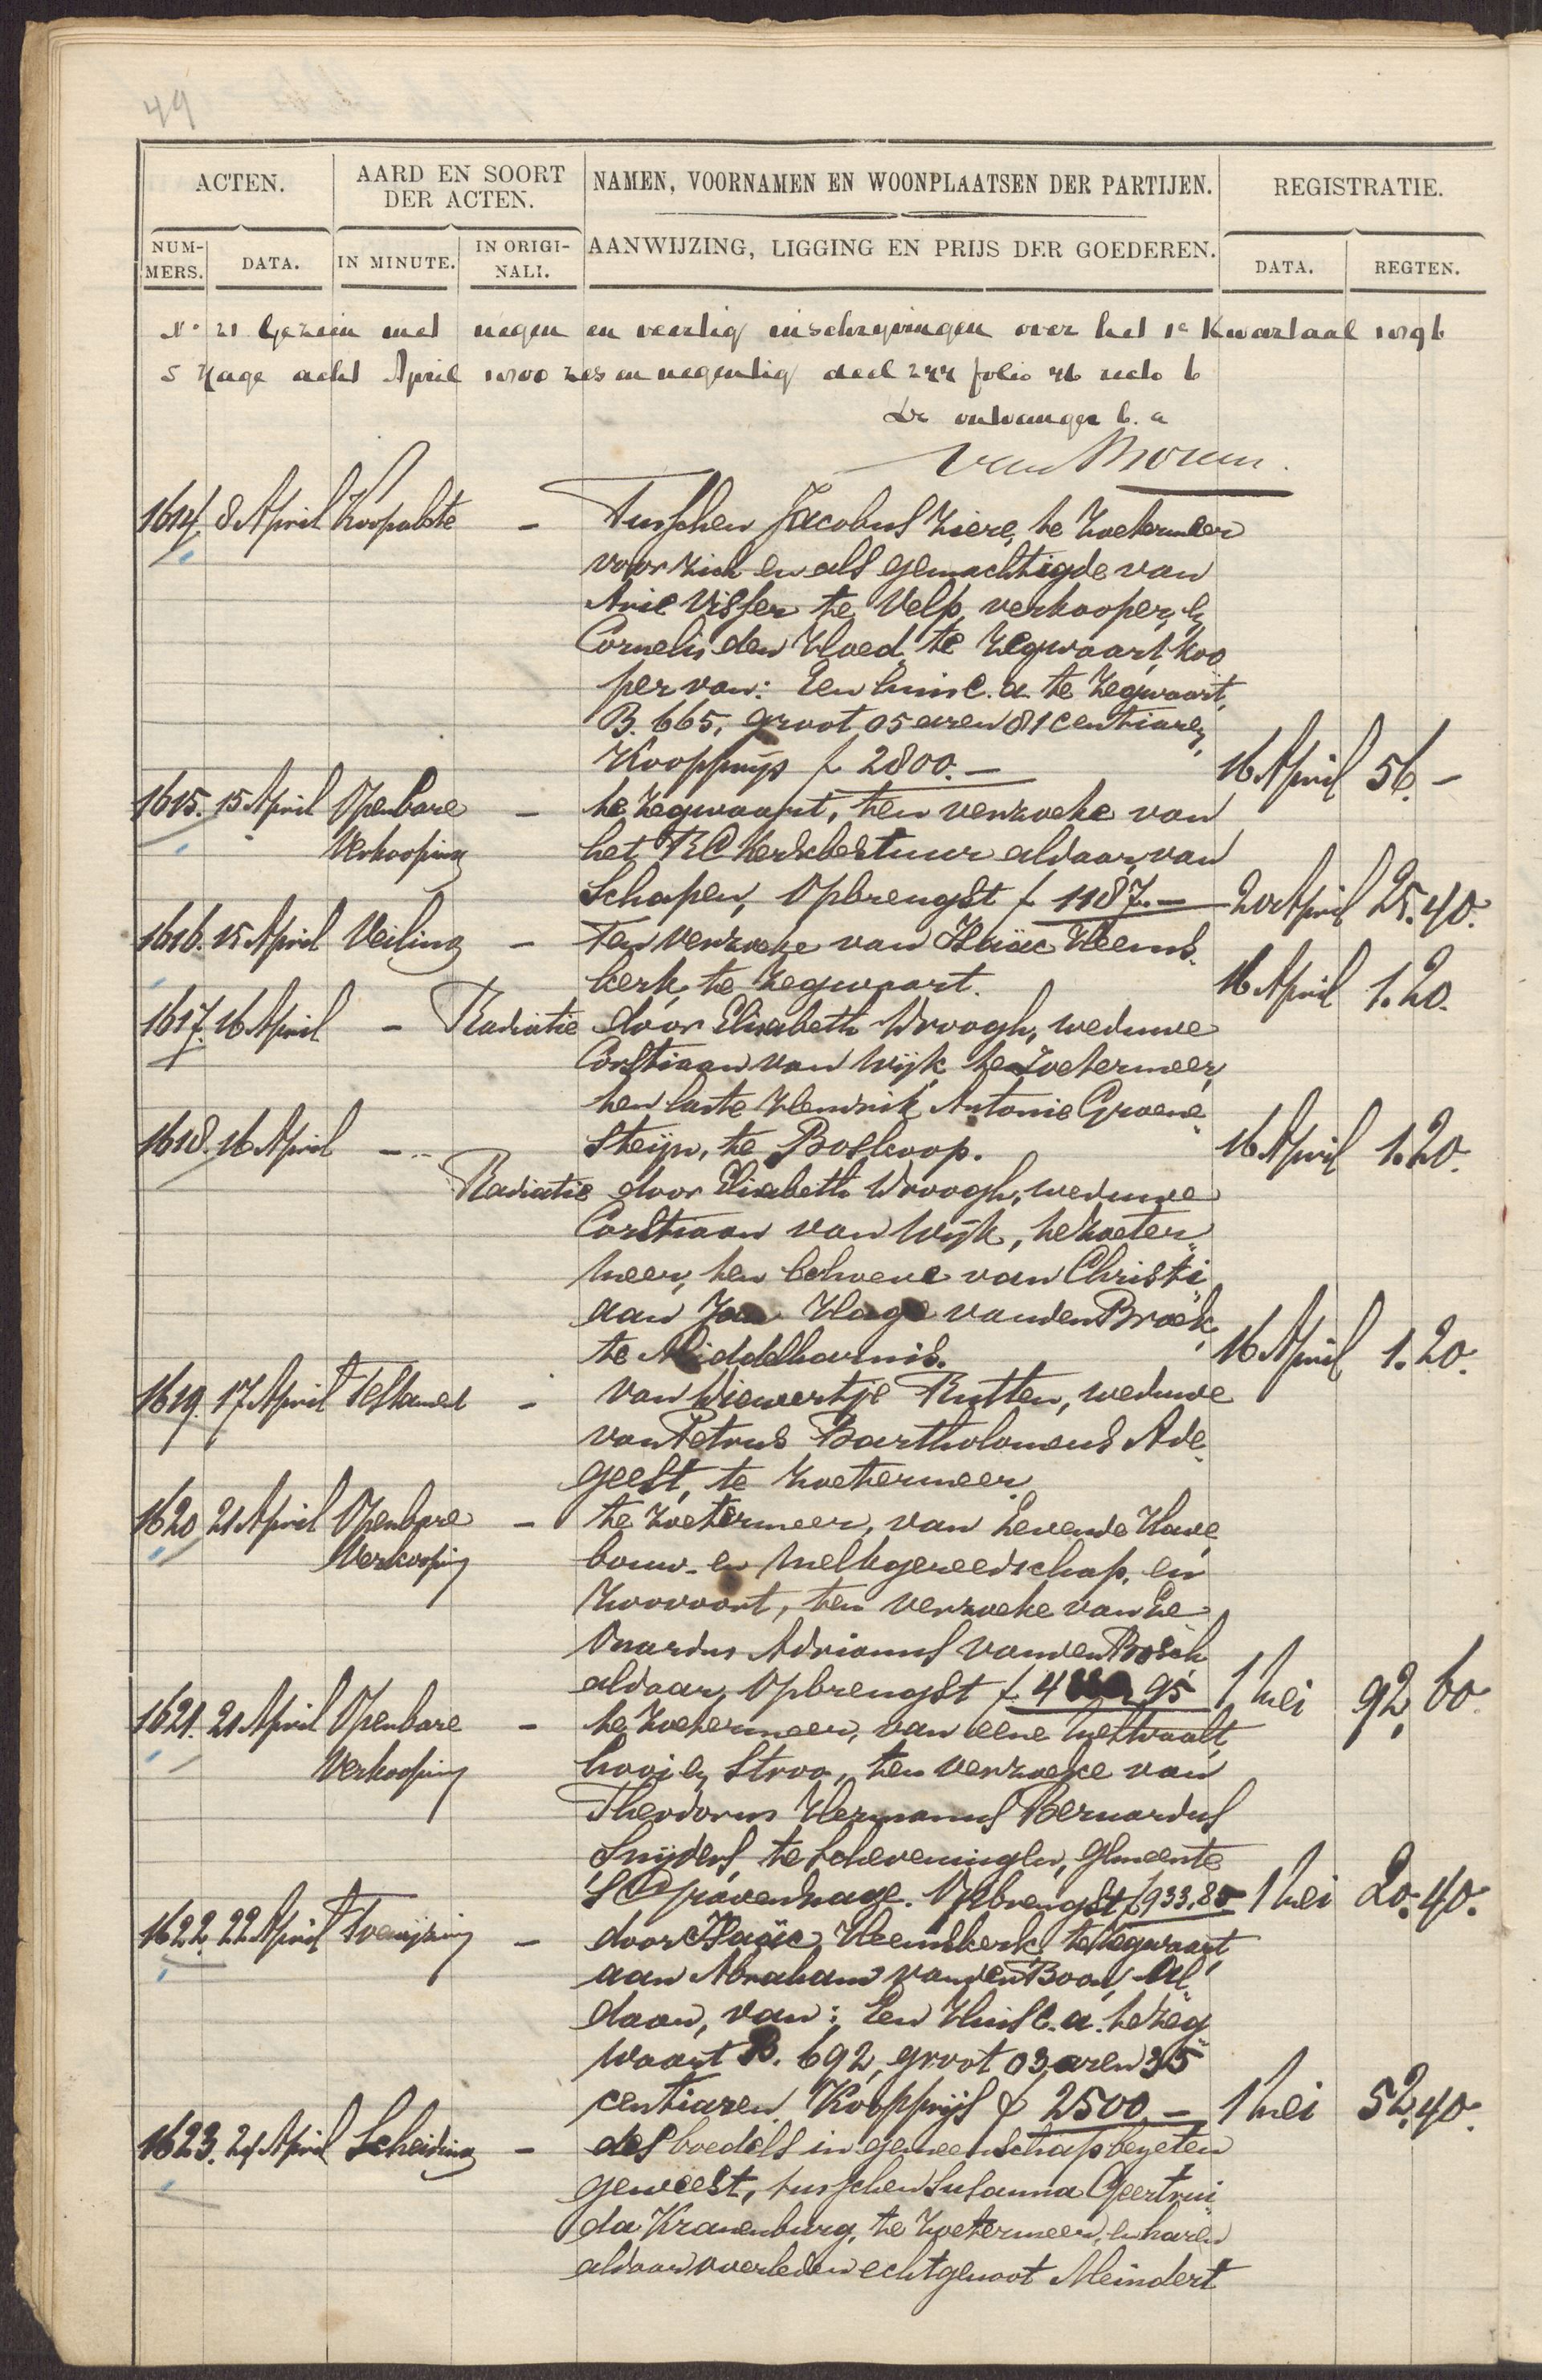 49
ACTEN. AARD EN SOORT DER ACTEN. NAMEN, VOORNAMEN EN WOONPLAATSEN DER PARTIJEN. REGISTRATIE.
NUMMERS. DATA. IN MINUTE. IN ORIGINALI. AANWIJZING, LIGGING EN PRIJS DER GOEDEREN. DATA. REGTEN.
No 21 Gezien met negen en veertig inschrijvingen over het 1e Kwartaal 1896
S Hage acht April 1800 zes en negentig deel 244 folio 46 recto 6
De ontvanger b. a
van
1614. 8 April Koopakte - Tusschen Jacobus Ziere, te Zoetermeer
voor zich en als gemachtigde van
Arie Visser te Velp, verkooper, en
Cornelis den Hoed, te Zegwaart, koo
per van: Een huis c.a. te Zegwaart,
B. 665, groot 05 aren 81 centiaren,
Koopprijs f 2800.- 16 April 56.-
1615. 15 April Openbare - te Zegwaart, ten verzoeke van
Verkooping het RC Kerkbestuur aldaar, van
Schapen, Opbrengst f 1187.- 20 April 25.40.
1616. 15 April Veiling - Ten verzoeke van Isaäc Heems-
kerk, te Zegwaart. 16 April 1.20.
1617. 16 April - Radiatie door Elisabeth Droogh, weduwe
Corstiaan van Wijk, te Zoetermeer,
ten laste Hendrik Antonie Groene-
1618. 16 April - steijn, te Boskoop. 16 April 1.20.
Radiatie door Elisabeth Droogh, weduwe
Corstiaan van Wijk, te Zoeter-
meer, ten behoeve van Christi-
aan Jan Hage van den Broek,
te Middelharnis. 16 April 1.20.
1619. 17 April Testament - van Diewertje Rutten, weduwe
van Petrus Bartholomeus Ade-
geest, te Zoetermeer.
1620 21 April Openbare - te Zoetermeer, van Levende Have,
Verkooping bouw- en melkgereedschap, en
zoovoort, ten verzoeke van Le-
onardus Adrianus van den Bosch
aldaar, Opbrengst f 4 95 1 Mei 92,60.
1621. 21 April Openbare - te Zoetermeer, van eene
Verkooping hooi en stroo, ten verzoeke van
Theodorus Hermanus Bernardus
Snijders, te Scheveningen, gemeente
'S Gravenhage. Opbrengst f 933,85 1 Mei 20.40.
1622. 22 April Toewijzing - door Isaäc Heemskerk, te Zegwaart,
aan Abraham van den Boon, al-
daar, van: Een Huis c.a. te Zeg-
waart B. 692, groot 03 aren 35
centiaren. Koopprijs f 2500.- 1 Mei 52,40.
1623. 24 April Scheiding - des boedels in gemeenschap bezeten
geweest, tusschen Susanna Geertrui-
da Kranenburg, te Zoetermeer, en haren
aldaar overleden echtgenoot Meindert